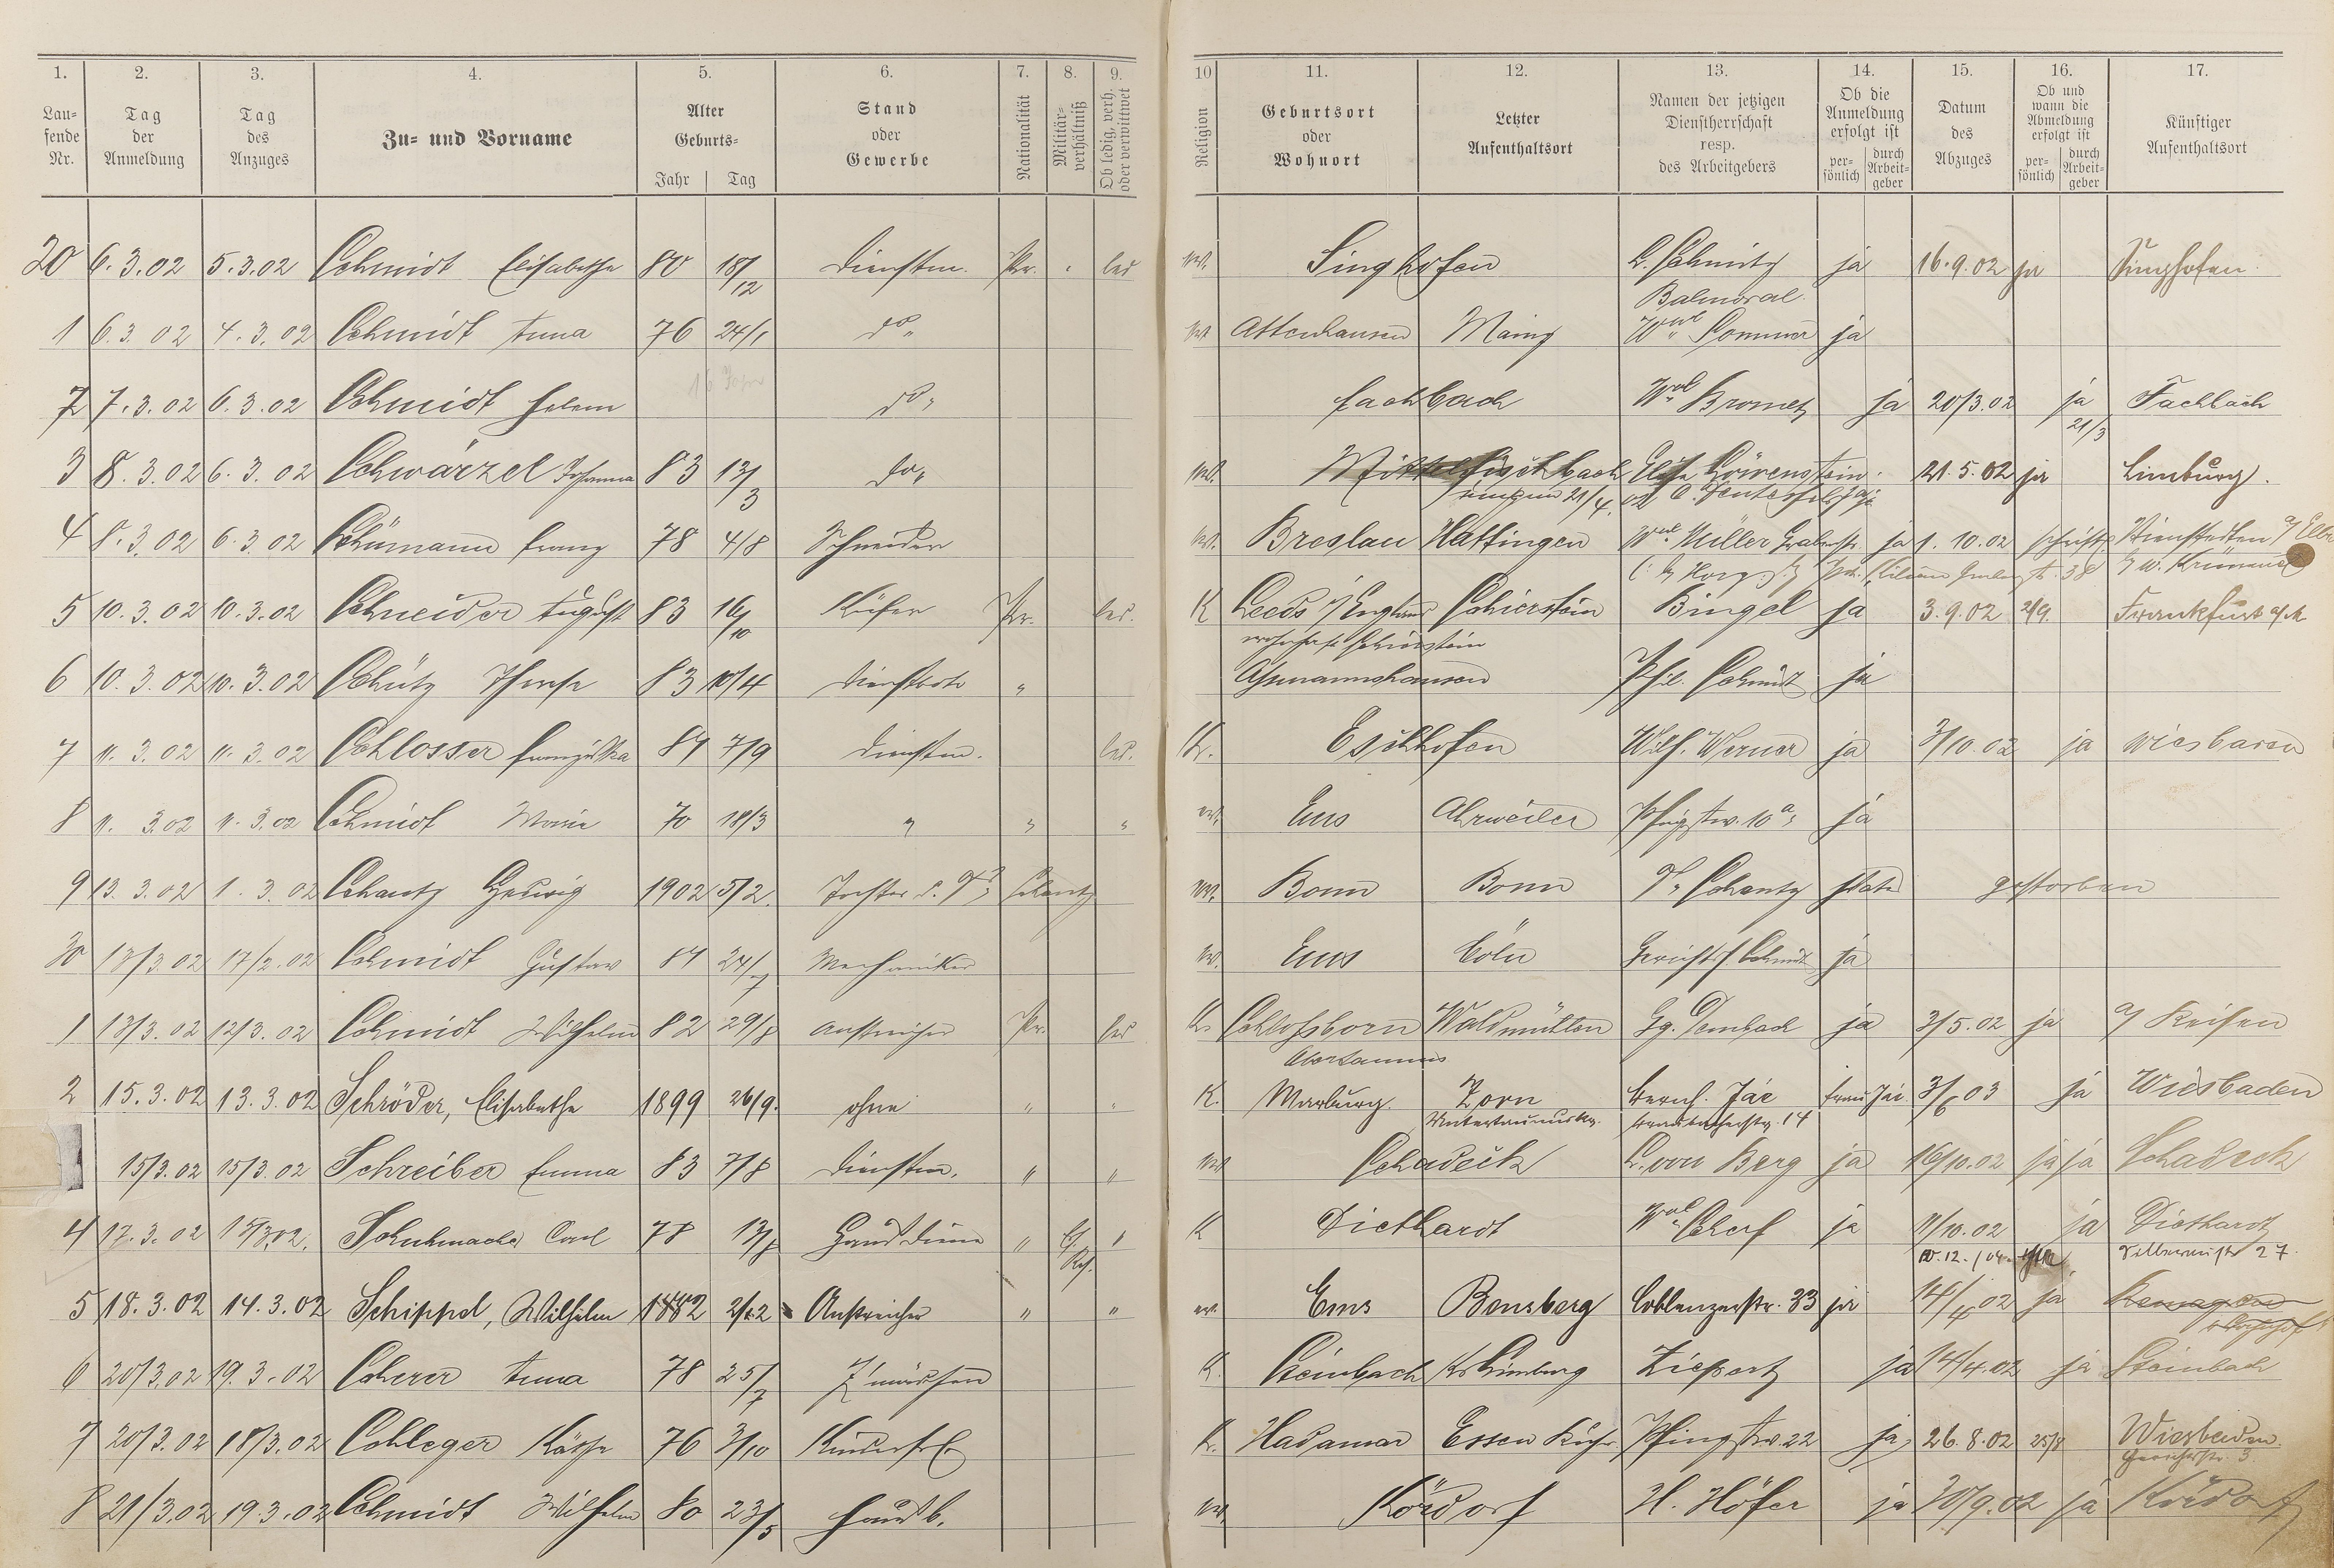 1. 2. 3. 4. 5. 6. 7. 8. 9. 10 11. 12. 13. 14. 15. 16. 17.
Lau-
fende
Nr.
Tag
der
Anmeldung
Tag
des
Anzuges
Zu- und Vorname
Alter
Geburts-
Jahr Tag
Stand
oder
Gewerbe
Nationalität
Militär-
verhältniß
Ob ledig, verh.
oder verwittwet
Religion
Geburtsort
oder
Wohnort
Letzter
Aufenthaltsort
Namen der jetzigen
Dienstherrschaft
resp.
des Arbeitgebers
Ob die
Anmeldung
erfolgt ist
per-
sönlich
durch
Arbeit-
geber
Datum
des
Abzuges
Ob und
wann die
Abmeldung
erfolgt ist
per-
sönlich
durch
Arbeit-
geber
Künftiger
Aufenthaltsort
20 6.3.02 5.3.02 Schmidt Elisabethe 80 18/12 Dienstm. Pr. led ev. Singhofen L. Schmitz ja 16.9.02 ja Singhofen
Balmoral
1 6.3.02 4.3.02 Schmidt Anna 76 24/1 do ev. Attenhausen Mainz Wwe Sommer ja
2 7.3.02 6.3.02 Schmidt Helene do Fachbach Brometz ja 20/3.02 ja 21/3 Fachbach
3 8.3.02 6.3.02 Schwärzel Johanna 83 13/3 do ev. Mittelfischbach Elise Löwenstein 21.5.02 ja Limburg.
21/4.02
4 8.3.02 6.3.02 Schümann Franz 78 4/8 Schneider ev. Breslau Hattingen Müller Grabenstr. ja 1.10.02 schriftl.
5 10.3.02 10.3.02 Schneider August 83 16/10 Küfer Pr. led. K Leeds i/ England Schierstein Bingel ja 3.9.02 2/9. Frankfurt a/M
wohnhaft Schierstein
6 10.3.02 10.3.02 Schütz Therese 83 10/4 Dienstbote " Assmannshausen Phil. Schmidt ja
7 11.3.02 11.3.02 Schlosser Franziska 84 7/9 Dienstm. led. K. Eschhofen Wilh. Werner ja 3/10.02 ja Wiesbaden
8 11.3.02 11.3.02 Schmidt Marie 70 18/3 " " " ev. Ems Ahrweiler Pfingstw. 10a ja
9 13.3.02 1.3.02 Schantz Hedwig 1902 5/2. Tochter d. Schantz ev. Bonn Bonn Schantz gestorben
30 13/3.02 17/2.02 Schmidt Gustav 84 24/7 Mechaniker ev. Ems Cöln Schmidt ja
1 13/3.02 12/3.02 Schmidt Wilhelm 82 29/8 Anstreicher Pr. led K. Schlossborn Waldmühlen Gg. Dembach ja 3/5.02 ja a/ Reisen
Obertaunus
2 15.3.02 13.3.02 Schröder, Elisabethe 1899 26/9. ohne " " K. Marburg. Zorn Bernh. Jäc Frau Jäc 3/6 03 ja Wiesbaden
Untertaunuskr. 14
15/3.02 15/3.02 Schreiber Emma 83 7/8 Dienstm. " " ev. Schadeck L. von Berg ja 16/10.02 ja ja Schadeck
4 17.3.02 15/3.02. Schuhmacher Carl 78 13/8 Hausdiener " Res. " K Diethardt Wwe Scherf ja 11/10.02 ja Diethardt
27.
5 18.3.02 14.3.02 Schippel, Wilhelm 1882 2/12 Anstreicher " " ev. Ems Bensberg Coblenzerstr. 33 ja 14/4 02 ja Remagen
6 20/3.02 19.3.02 Scherer Anna 78 25/7 Z'mädchen K. Steinbach Kr. Limburg Ziepertz ja 14/4.02 ja Steinbach
7 20/3.02 18/3.02 Schleger Käthe 76 3/10 K. Hadamar Essen Ruhr Pfingstw. 22 ja 26.8.02 25/8 Wiesbaden.
8 21/3.02 19.3.02 Schmidt Wilhelm 80 23/5 Hausb. ev. Kördorf H. Höfer ja 30/9.02 ja Kördorf